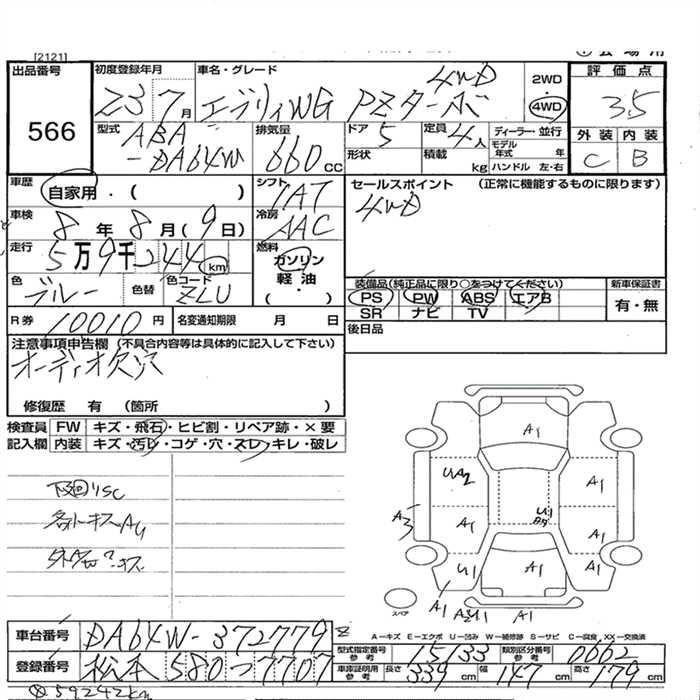 [2121]
出品番号 566
初度登録年月 23 7月
車名・グレード エブリィWG PZターボ 4WD
2WD 4WD
評価点 3.5
外装 内装
C B
型式 ABA-DA64W
排気量 660cc
ドア 5 定員 4人 ディーラー・並行
形状 積載 kg モデル年式 年
ハンドル 左・右
車歴 自家用・( )
シフト IAT
セールスポイント (正常に機能するものに限ります)
4WD
車検 8年8月(9日)
冷房 AAC
走行 5万9千244km
燃料 ガソリン 軽油 ・( )
色 ブルー 色替 色コード ZLU
装備品(純正品に限り○をつけてください) 新車保証書
PS PW ABS エアB 有・無
SR ナビ TV
R券 10010円 名変通知期限 月 日
後日品
注意事項申告欄(不具合内容等は具体的に記入して下さい)
オーディオ欠穴
修復歴 有 (箇所 )
検査員 FW キズ・飛石・ヒビ割・リペア跡・×要
記入欄 内装 キズ・汚レ・コゲ・穴・スレ・キレ・破レ
下回りSC
A1
UA2 A1
A3 A1 U1 A1
U1 A1 A1
A1 A1
スペア
A－キズ E－エクボ U－凹み W－補修跡 S－サビ C－腐食 XX－交換済
車台番号 DA64W-372779
型式指定番号参考 15133 類別区分番号参考 0662
登録番号 松本 580 7707
車庫証明用参考 長さ 339cm 幅 147cm 高さ 179cm
59242km